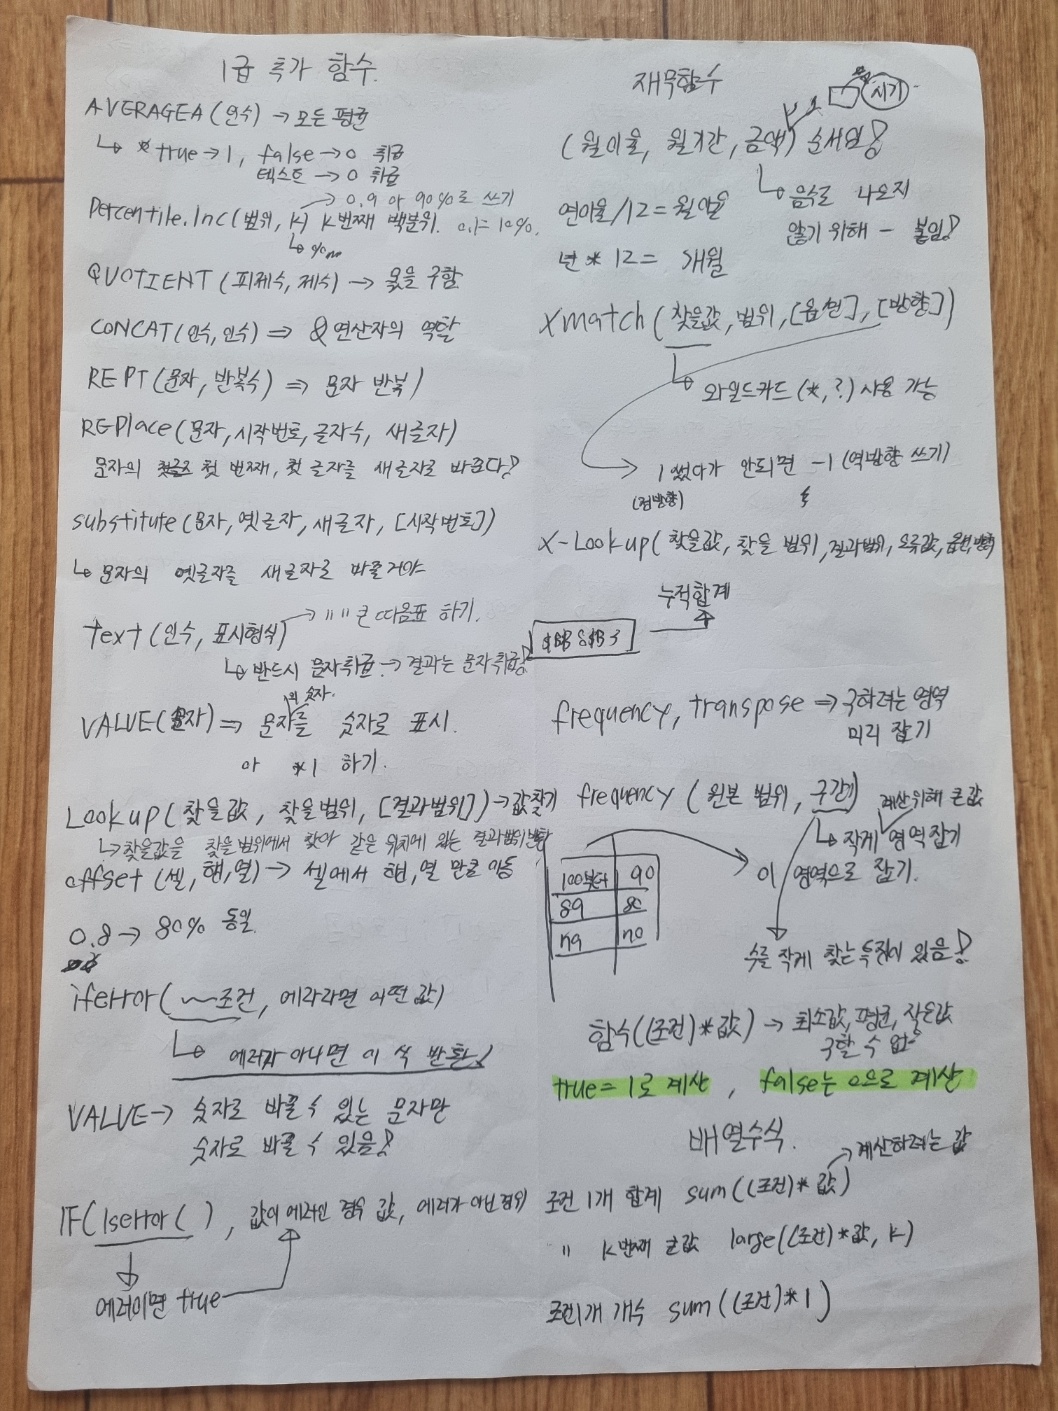 1급 추가 함수.
AVERAGEA (인수) → 모든 평균
↳ * true → 1, false → 0 취급
텍스트 → 0 취급
→ 0.9 or 90%로 쓰기
Percentile.Inc(범위, K) K번째 백분위. 0.1= 10%.
QUOTIENT (피제수, 제수) → 몫을 구함
CONCAT(인수, 인수) ⇒ &연산자의 역할
REPT (문자, 반복수) ⇒ 문자 반복)
REPlace(문자, 시작번호, 글자수, 새글자)
문자의 첫 번째, 첫 글자를 새글자로 바꾼다!
substitute(문자, 옛글자, 새글자, [시작번호])
↳ 문자의 옛글자를 새글자로 바꿀거야
→ " " 큰 따옴표 하기.
text (인수, 표시형식)
↳ 반드시 문자취급 → 결과는 문자취급!
의 숫자.
VALUE(문자) ⇒ 문자를 숫자로 표시.
or *1 하기.
Lookup( 찾을값, 찾을범위, [결과범위]) → 값찾기
↳ 찾을값을 찾을범위에서 찾아 같은 위치에 있는 결과범위반환
offset (셀, 행, 열) → 셀에서 행, 열 만큼 이동
0.8 → 80% 동일.
iferror( 조건, 에러라면 어떤 값)
↳ 에러가 아니면 이 식 반환!
VALUE → 숫자로 바꿀 수 있는 문자만
숫자로 바꿀 수 있음!
IF(Iserror( ), 값이 에러인 경우 값, 에러가 아닌경우
에러이면 true
재무함수
시기
(월이율, 월기간, 금액) 순서임!
↳ 음수로 나오지
않기 위해 - 붙임!
연이율/12 = 월이율
년 * 12 = 개월
Xmatch (찾을값, 범위, [옵션], [방향])
↳ 와일드카드 (*, ?) 사용 가능
→ 1 썼다가 안되면 -1 (역방향 쓰기)
(정방향)
X-Lookup( 찾을값, 찾을 범위, 결과범위, 오류값, 옵션, 방향
누적합계
frequency, transpose ⇒ 구하려는 영역
미리 잡기
frequency ( 원본 범위, 구간)
계산위해 큰값
↳ 작게 영역 잡기
이 영역으로 잡기.
100부터 90
89 80
79 70
수를 작게 찾는 특징이 있음!
함수((조건)*값) → 최소값, 평균, 작은값
구할 수 없음
true = 1로 계산, false는 0으로 계산
배열수식.
→ 계산하려는 값
조건 1개 합계 sum((조건)*값)
" K번째 큰값 large((조건)*값, K)
조건1개 개수 sum((조건)*1)